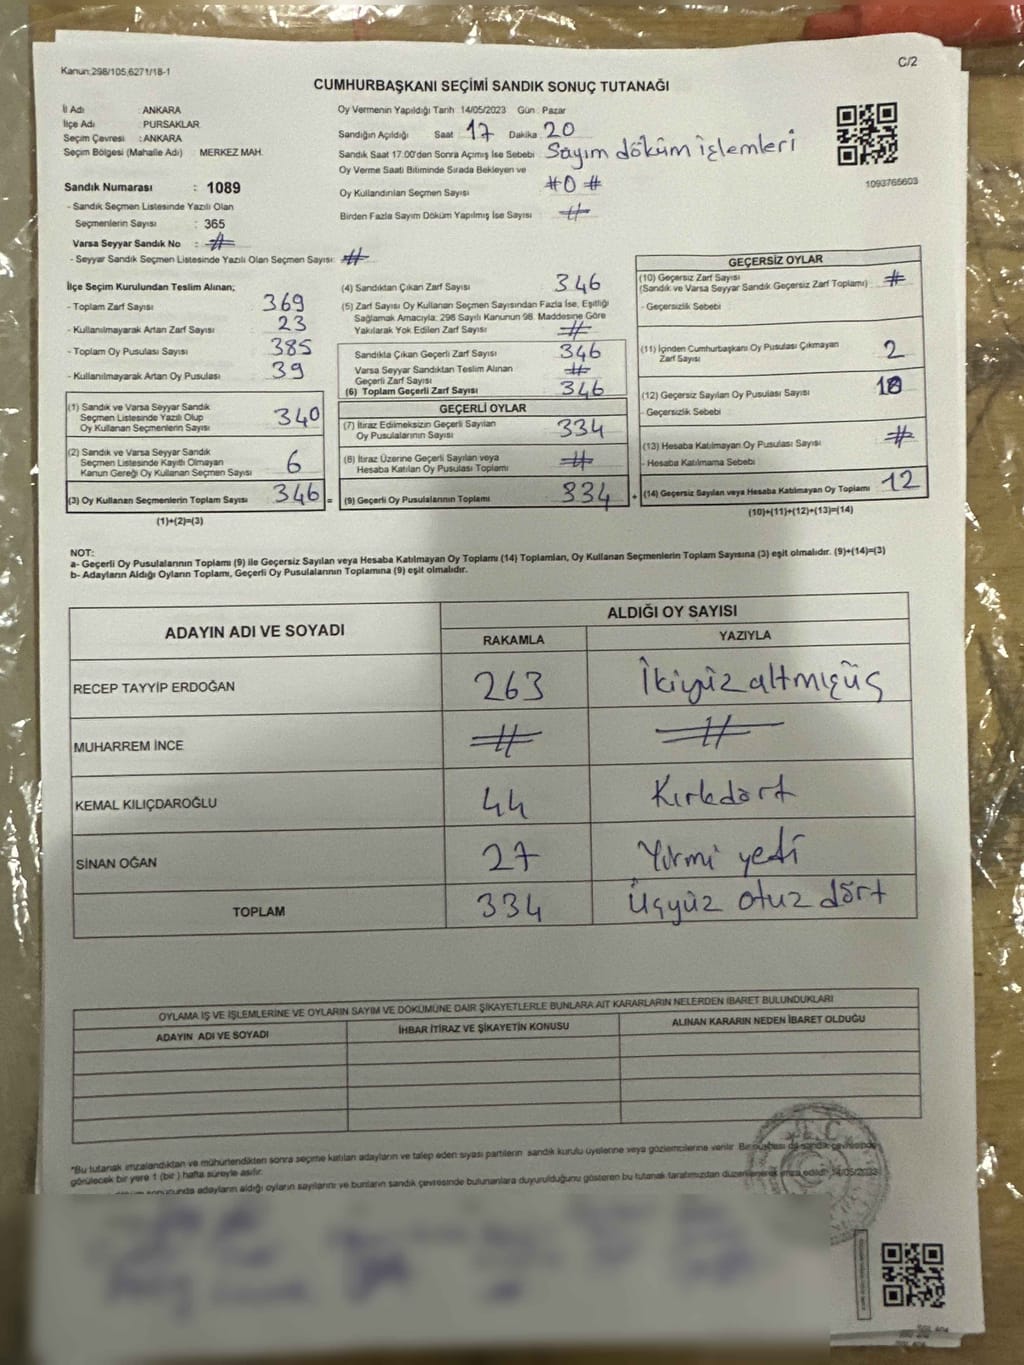 Kanun:298/105,6271/18-1
C/2
CUMHURBAŞKANI SEÇİMİ SANDIK SONUÇ TUTANAĞI
İl Adı : ANKARA
İlçe Adı : PURSAKLAR
Seçim Çevresi : ANKARA
Seçim Bölgesi (Mahalle Adı) : MERKEZ MAH.
Sandık Numarası : 1089
- Sandık Seçmen Listesinde Yazılı Olan
Seçmenlerin Sayısı : 365
Varsa Seyyar Sandık No : #
- Seyyar Sandık Seçmen Listesinde Yazılı Olan Seçmen Sayısı: #
Oy Vermenin Yapıldığı Tarih :14/05/2023 Gün : Pazar
Sandığın Açıldığı Saat 17 Dakika 20
Sandık Saat 17.00'den Sonra Açımış İse Sebebi : Sayım döküm işlemleri
Oy Verme Saati Bitiminde Sırada Bekleyen ve
Oy Kullandırılan Seçmen Sayısı #0#
Birden Fazla Sayım Döküm Yapılmış İse Sayısı #
1093765603
İlçe Seçim Kurulundan Teslim Alınan;
- Toplam Zarf Sayısı 369
- Kullanılmayarak Artan Zarf Sayısı 23
- Toplam Oy Pusulası Sayısı 385
- Kullanılmayarak Artan Oy Pusulası 39
(1) Sandık ve Varsa Seyyar Sandık
Seçmen Listesinde Yazılı Olup
Oy Kullanan Seçmenlerin Sayısı 340
(2) Sandık ve Varsa Seyyar Sandık
Seçmen Listesinde Kayıtlı Olmayan
Kanun Gereği Oy Kullanan Seçmen Sayısı 6
(3) Oy Kullanan Seçmenlerin Toplam Sayısı 346 =
(1)+(2)=(3)
(4) Sandıktan Çıkan Zarf Sayısı 346
(5) Zarf Sayısı Oy Kullanan Seçmen Sayısından Fazla İse, Eşitliği
Sağlamak Amacıyla; 298 Sayılı Kanunun 98. Maddesine Göre
Yakılarak Yok Edilen Zarf Sayısı #
Sandıkta Çıkan Geçerli Zarf Sayısı 346
Varsa Seyyar Sandıktan Teslim Alınan
Geçerli Zarf Sayısı #
(6) Toplam Geçerli Zarf Sayısı 346
GEÇERLİ OYLAR
(7) İtiraz Edilmeksizin Geçerli Sayılan
Oy Pusulalarının Sayısı 334
(8) İtiraz Üzerine Geçerli Sayılan veya
Hesaba Katılan Oy Pusulası Toplamı #
(9) Geçerli Oy Pusulalarının Toplamı 334 +
GEÇERSİZ OYLAR
(10) Geçersiz Zarf Sayısı
(Sandık ve Varsa Seyyar Sandık Geçersiz Zarf Toplamı) #
- Geçersizlik Sebebi
(11) İçinden Cumhurbaşkanı Oy Pusulası Çıkmayan
Zarf Sayısı 2
(12) Geçersiz Sayılan Oy Pusulası Sayısı 10
- Geçersizlik Sebebi
(13) Hesaba Katılmayan Oy Pusulası Sayısı #
- Hesaba Katılmama Sebebi
(14) Geçersiz Sayılan veya Hesaba Katılmayan Oy Toplamı 12
(10)+(11)+(12)+(13)=(14)
NOT:
a- Geçerli Oy Pusulalarının Toplamı (9) ile Geçersiz Sayılan veya Hesaba Katılmayan Oy Toplamı (14) Toplamları, Oy Kullanan Seçmenlerin Toplam Sayısına (3) eşit olmalıdır. (9)+(14)=(3)
b- Adayların Aldığı Oyların Toplamı, Geçerli Oy Pusulalarının Toplamına (9) eşit olmalıdır.
ADAYIN ADI VE SOYADI
ALDIĞI OY SAYISI
RAKAMLA YAZIYLA
RECEP TAYYİP ERDOĞAN 263 İkiyüzaltmışüç
MUHARREM İNCE # #
KEMAL KILIÇDAROĞLU 44 Kırkdört
SİNAN OĞAN 27 Yirmi yedi
TOPLAM 334 Üçyüz otuz dört
OYLAMA İŞ VE İŞLEMLERİNE VE OYLARIN SAYIM VE DÖKÜMÜNE DAİR ŞİKAYETLERLE BUNLARA AİT KARARLARIN NELERDEN İBARET BULUNDUKLARI
ADAYIN ADI VE SOYADI İHBAR İTİRAZ VE ŞİKAYETİN KONUSU ALINAN KARARIN NEDEN İBARET OLDUĞU
*Bu tutanak imzalandıktan ve mühürlendikten sonra seçime katılan adayların ve talep eden siyasi partilerin sandık kurulu üyelerine veya gözlemcilerine verilir. Bir nüshası da sandık çevresinde
görülecek bir yere 1 (bir) hafta süreyle asılır.
sonucunda adayların aldığı oyların sayılarını ve bunların sandık çevresinde bulunanlara duyurulduğunu gösteren bu tutanak tarafımızdan düzenlenerek imza edildi. 14/05/2023